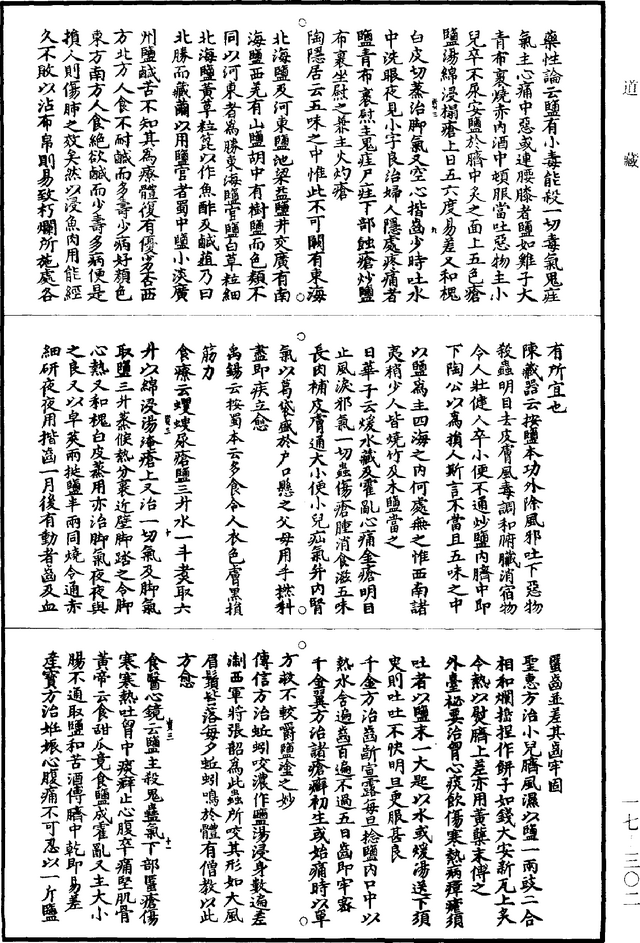 道藏
一七—三〇二
藥性論云鹽有小毒能殺一切毒氣鬼疰
氣主心痛中惡或連腰膝者鹽如雞子大
青布裹燒赤內酒中頓服當吐惡物主小
兒卒不尿安鹽於臍中灸之面上五色瘡
鹽湯綿浸搨瘡上日五六度易差又和槐
白皮切蒸治腳氣又空心揩齒少時吐水
中洗眼夜見小字良治婦人隱處疼痛者
鹽青布裹熨主鬼疰尸疰下部蝕瘡炒鹽
布裹坐熨之兼主火灼瘡
陶隱居云五味之中惟此不可闕有東海
北海鹽及河東鹽池梁益鹽井交廣有南
海鹽西羌有山鹽胡中有樹鹽而色類不
同以河東者為勝東海鹽官鹽白草粒細
北海鹽黃草粒麁以作魚鮓及鹹菹乃曰
北勝而藏繭必用鹽官者蜀中鹽小淡廣
州鹽鹹苦不知其為療體復有優劣否西
方北方人食不耐鹹而多壽少病好顏色
東方南方人食絕欲鹹而少壽多病便是
損人則傷肺之效矣然以浸魚肉用能經
久不敗以沾布帛則易致朽爛所施處各
有所宜也
陳藏器云按鹽本功外除風邪吐下惡物
殺蟲明目去皮膚風毒調和腑臟消宿物
令人壯健人卒小便不通炒鹽內臍中即
下陶公以為損人斯言不當且五味之中
以鹽為主四海之內何處無之惟西南諸
夷稍少人皆燒竹及木鹽當之
日華子云煖水藏及霍亂心痛金瘡明目
止風淚邪氣一切蟲傷瘡腫消食滋五味
長肉補皮膚通大小便小兒疝氣并內腎
氣以葛袋盛於戶口懸之父母用手撚料
盡即疾立愈
禹錫云按蜀本云多食令人衣色膚黑損
筋力
食療云蠼螋尿瘡鹽三升水一斗煮取六
升以綿浸湯淹瘡上又治一切氣及腳氣
取鹽三升蒸候熱分裹近壁腳踏之令腳
心熱又和槐白皮蒸用亦治腳氣夜夜與
之良又以皂莢兩挺鹽半兩同燒令通赤
細研夜夜用揩齒一月後有動者齒及血
䘌齒並差其齒牢固
聖惠方治小兒臍風濕以鹽一兩豉二合
相和爛搗捏作餅子如錢大安新瓦上炙
令熱以熨臍上差亦用黃蘗末傅之
外臺祕要治胷心痰飲傷寒熱病瘴瘧須
吐者以鹽末一大匙以水或煖湯送下須
臾則吐吐不快明旦更服甚良
千金方治齒齗宣露每旦捻鹽內口中以
熱水含遍齒百遍不過五日齒即牢密
千金翼方治諸瘡癬初生或始痛時以單
方救不較嚼鹽塗之妙
傳信方治蚯蚓咬濃作鹽湯浸身數遍差
淛西軍將張韶為此蟲所咬其形如大風
眉鬚髭落每夕蚯蚓鳴於體有僧教以此
方愈
食醫心鏡云鹽主殺鬼蠱氣下部䘌瘡傷
寒寒熱吐胷中痰癖止心腹卒痛堅肌骨
黃帝云食甜瓜竟食鹽成霍亂又主大小
腸不通取鹽和苦酒傅臍中乾即易差
產寶方治姙娠心腹痛不可忍以一斤鹽